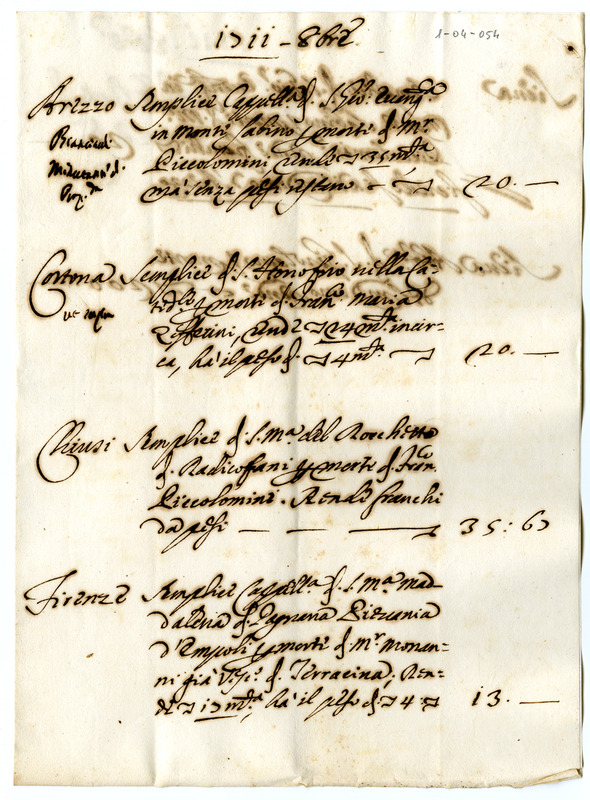 1711 - 8bre
1-04-054
Arezzo Semplice Cappella di S. Gio: Evang.
in Monte Sabino p morte di Mr.
Piccolomini rende 35 mta
ma senza pesi 20. —
Cortona Semplice di S. Honofrio nella Ca-
ted.le p morte di Fran. Maria
Zefferini, rende 24 mta incir-
ca, ha il peso di 4 mta 20. —
Chiusi Semplice di S. Ma. del Rocchetto
di Radicofani p morte di Fran.
Piccolomini. Rende franchi
da pesi — — — 35: 60
Firenze Semplice Cappella di S. Ma. Mad-
dalena di Pagnana Pievania
d'Empoli p morte di Mr. Monan-
ni già Vesc. di Terracina, Ren-
de 17 mta, ha il peso di 4 13. —